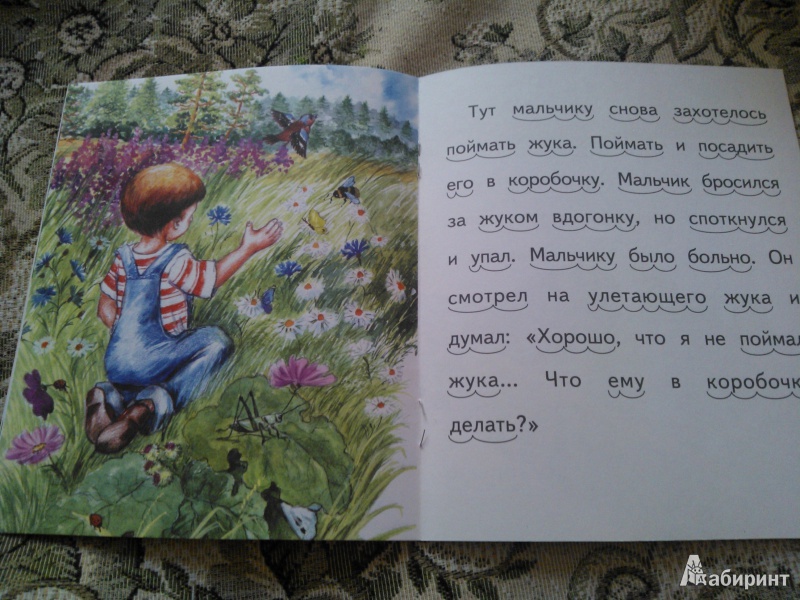 Тут мальчику снова захотелось
поймать жука. Поймать и посадить
его в коробочку. Мальчик бросился
за жуком вдогонку, но споткнулся
и упал. Мальчику было больно. Он
смотрел на улетающего жука и
думал: «Хорошо, что я не поймал
жука... Что ему в коробочк
делать?»
Лабиринт